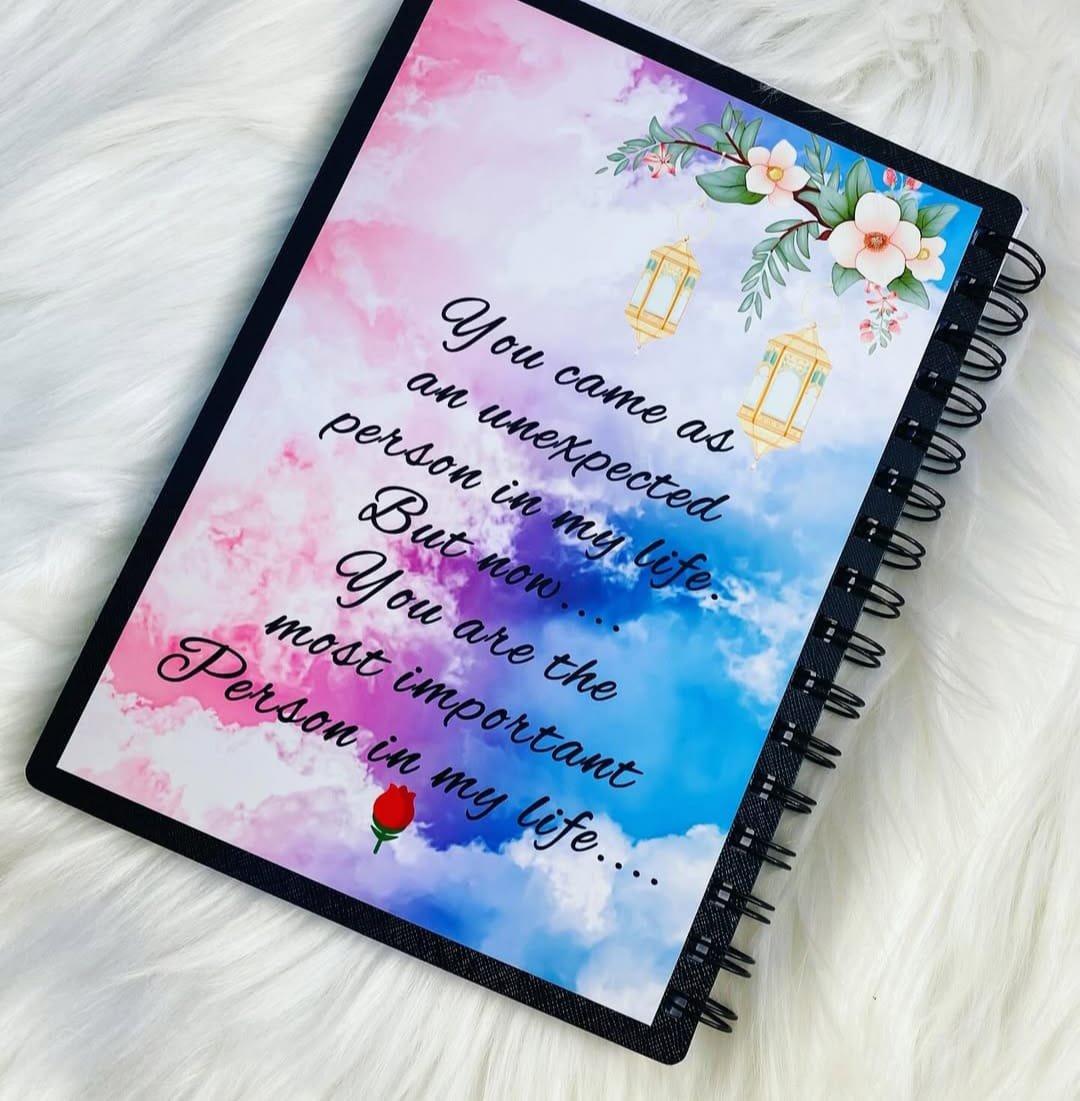 You came as
an unexpected
person in my life.
But now....
You are the
most important
Person in my life....